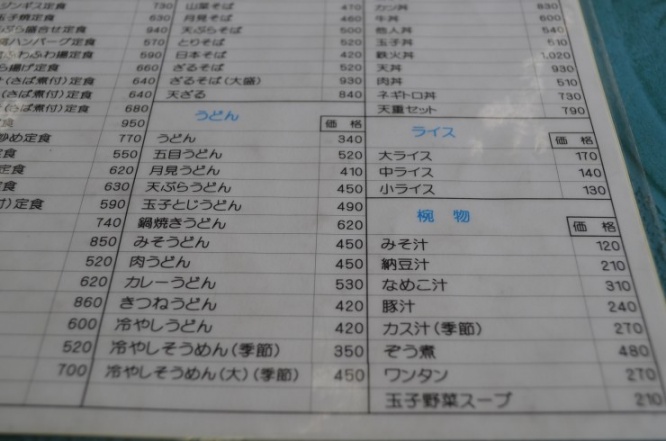 ジンギス定食 730
玉子焼定食 630
ぷら盛合せ定食 940
風ハンバーグ定食 570
ふわふわ揚定食 590
ら揚げ定食 660
(さば煮付)定食 640
(さば煮付)定食 640
(さば煮付)定食 680
定食 950
炒め定食 770
定食 550
定食 620
定食 630
付)定食 590
740
850
520
620
860
600
520
700
山菜そば 520
月見そば 460
天ぷらそば 500
とりそば 520
日本そば 420
ざるそば 520
ざるそば(大盛) 930
天ざる 840
うどん 価格
うどん 340
五目うどん 520
月見うどん 410
天ぷらうどん 450
玉子とじうどん 490
鍋焼きうどん 620
みそうどん 450
肉うどん 450
カレーうどん 530
きつねうどん 420
冷やしうどん 420
冷やしそうめん(季節) 350
冷やしそうめん(大)(季節) 450
カツ丼 830
牛丼 600
他人丼 540
玉子丼 510
鉄火丼 1,020
天丼 930
肉丼 510
ネギトロ丼 730
天重セット 790
ライス 価格
大ライス 170
中ライス 140
小ライス 130
椀物 価格
みそ汁 120
納豆汁 210
なめこ汁 310
豚汁 240
カス汁(季節) 270
ぞう煮 480
ワンタン 270
玉子野菜スープ 210